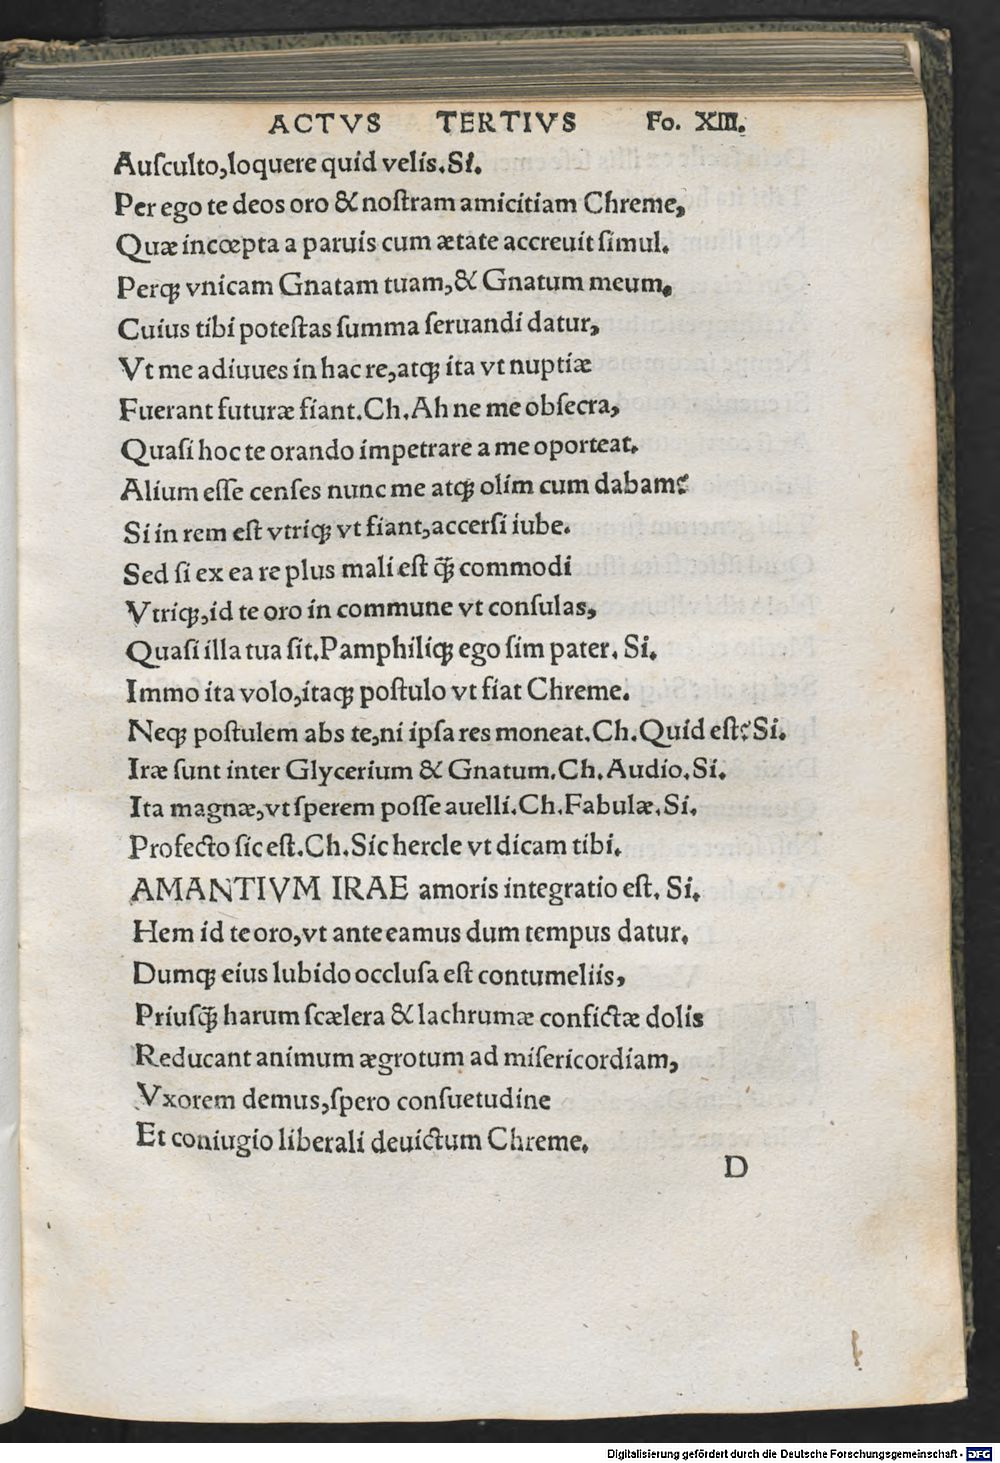 ACTVS TERTIVS Fo. XIII.
Auſculto,loquere quid velis.Si.
Per ego te deos oro & noſtram amicitiam Chreme,
Quæ incœpta a paruis cum ætate accreuit ſimul.
Perqꝫ vnicam Gnatam tuam,& Gnatum meum.
Cuius tibi poteſtas ſumma ſeruandi datur,
Vt me adiuues in hac re,atqꝫ ita vt nuptiæ
Fuerant futuræ fiant.Ch.Ah ne me obſecra,
Quaſi hoc te orando impetrare a me oporteat.
Alium eſſe cenſes nunc me atqꝫ olim cum dabam?
Si in rem eſt vtriqꝫ vt fiant,accerſi iube.
Sed ſi ex ea re plus mali eſt q̄ꝫ commodi
Vtriqꝫ,id te oro in commune vt conſulas,
Quaſi illa tua ſit.Pamphiliqꝫ ego ſim pater. Si.
Immo ita volo,itaqꝫ poſtulo vt fiat Chreme.
Neqꝫ poſtulem abs te,ni ipſa res moneat.Ch.Quid eſt?Si.
Iræ ſunt inter Glycerium & Gnatum.Ch.Audio.Si.
Ita magnæ,vt ſperem poſſe auelli.Ch.Fabulæ.Si.
Profecto ſic eſt.Ch.Sic hercle vt dicam tibi.
AMANTIVM IRAE amoris integratio eſt. Si.
Hem id te oro,vt ante eamus dum tempus datur.
Dumqꝫ eius lubido occluſa eſt contumeliis,
Priuſq̄ꝫ harum ſcælera & lachrumæ confictæ dolis
Reducant animum ægrotum ad miſericordiam,
Vxorem demus,ſpero conſuetudine
Et coniugio liberali deuictum Chreme.
D
Digitalisierung gefördert durch die Deutsche Forschungsgemeinschaft - DFG